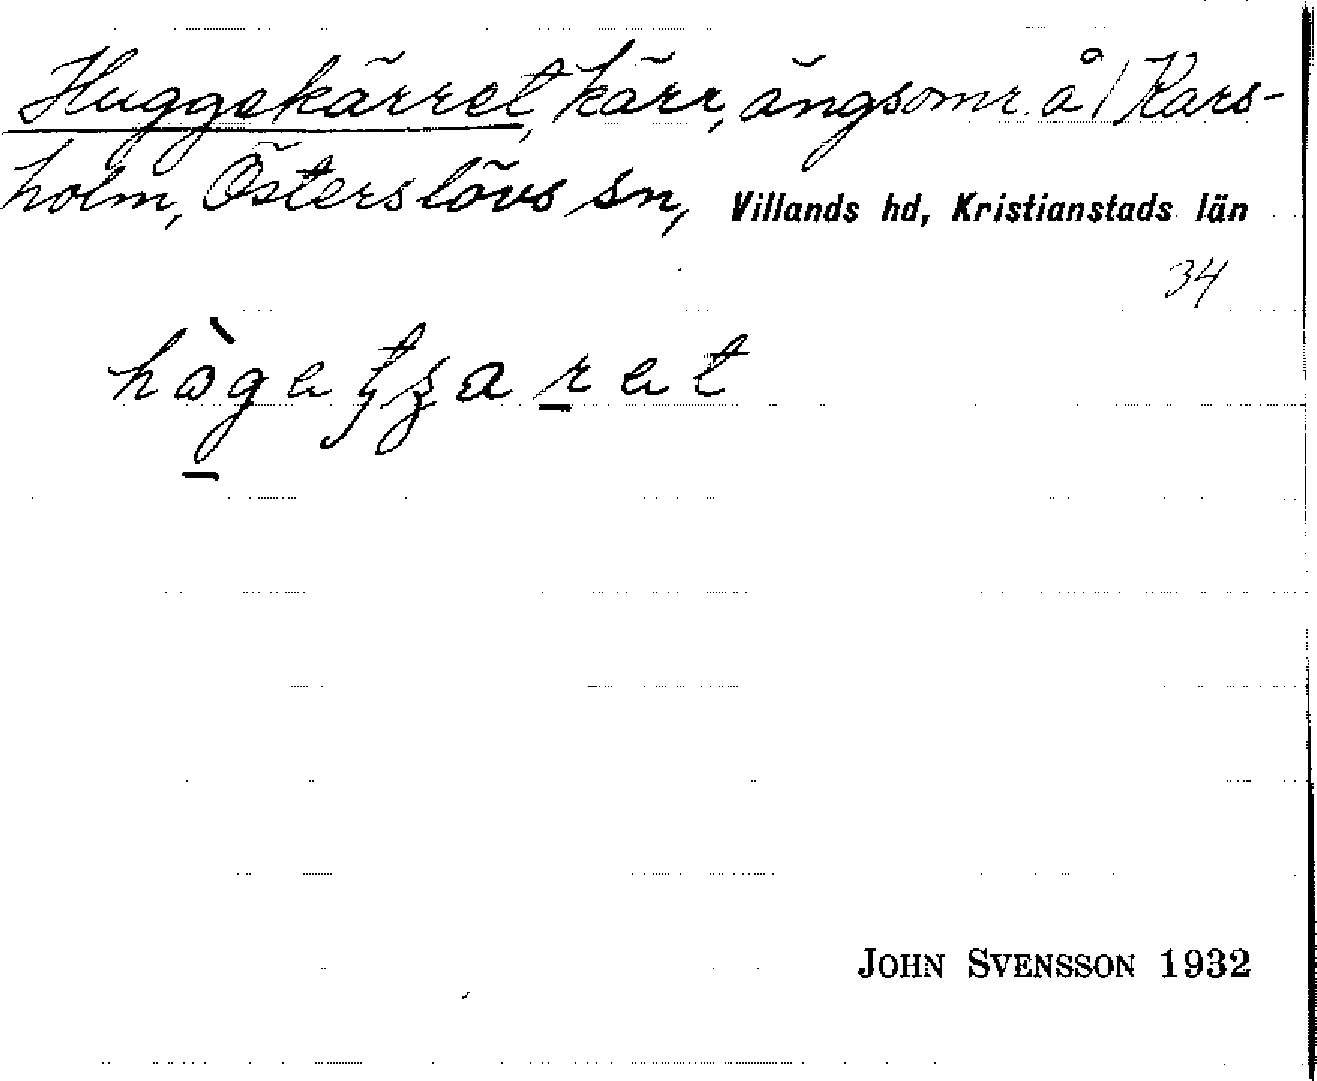 Huggekärret, kärr, ängsomr. å / Kars-
holm, Österslövs sn, Villands hd, Kristianstads län
34
JOHN SVENSSON 1932